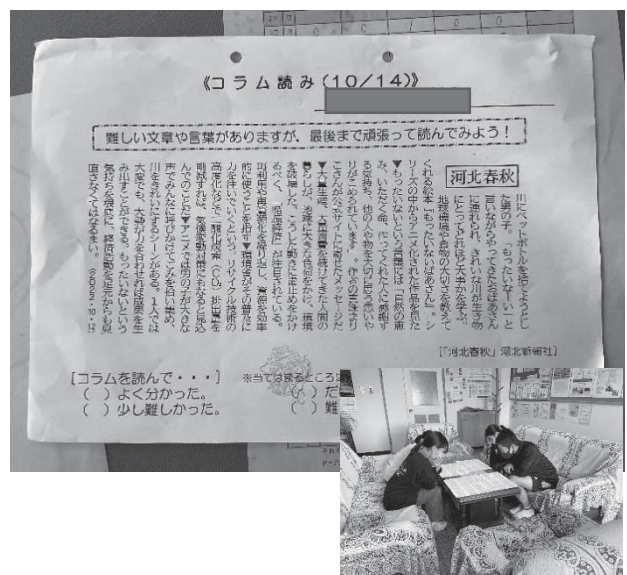 《コラム読み(10/14)》
難しい文章や言葉がありますが、最後まで頑張って読んでみよう!
河北春秋
川にペットボトルを捨てようとし
た男の子。「もったいなーい」と
言いながらやってきたおばあさん
に連れられ、きれいな川が生き物
にとってどれほど大事かを学ぶ。
地球環境や食物の大切さを教えて
くれる絵本「もったいないばあさん」。シ
リーズの中からアニメ化された作品を見た
▼もったいないという言葉には「自然の恵
み、いただく命、作ってくれた人に感謝す
る気持ち、他の人や物を大切に思う思いや
りがこめられています」。作者の真珠まり
こさんが公式サイトに寄せたメッセージだ
▼大量生産、大量消費を続けてきた人間の
暮らしが、地球に大きな負荷をかけ、環境
を破壊した。こうした動きに歯止めをかけ
るべく、「循環経済」が注目されている。
再利用や再資源化を繰り返し、資源を効率
的に使うことを指す▼環境省がその普及に
力を注いでいくという。リサイクル技術の
高度化などで二酸化炭素(CO₂)排出量を
削減すれば、気候変動対策にもなると見込
んでのことだ▼アニメでは男の子が大きな
声でみんなに呼びかけてごみを拾い集め、
川をきれいにするシーンがある。1人では
大変でも、大勢が力を合わせれば成果を生
み出すことができる。もったいないという
気持ちを根底に、経済活動を足元からも見
直さなくてはなるまい。(2022・10・12)
[「河北春秋」河北新報社]
[コラムを読んで・・・] ※当てはまるところに
( )よく分かった。 ( )だ
( )少し難しかった。 ( )難